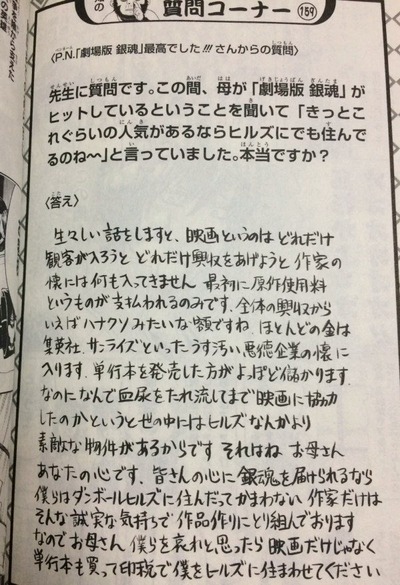 質問コーナー 159
〈P.N.「劇場版 銀魂」最高でした!!!さんからの質問〉
先生に質問です。この間、母が「劇場版 銀魂」が
ヒットしているということを聞いて「きっとこ
れぐらいの人気があるならヒルズにでも住んで
るのね〜」と言っていました。本当ですか?
〈答え〉
生々しい話をしますと、映画というのは どれだけ
観客が入ろうと どれだけ興収をあげようと 作家の
懐には何も入ってきません 最初に原作使用料
というものが支払われるのみです。全体の興収から
いえばハナクソみたいな額ですね。ほとんどの金は
集英社、サンライズといったうす汚い悪徳企業の懐に
入ります。単行本を発売した方がよっぽど儲かります。
なのになんで血尿をたれ流してまで映画に協力
したのかというと世の中にはヒルズなんかより
素敵な物件があるからです それはね お母さん
あなたの心です。皆さんの心に銀魂を届けられるなら
僕らはダンボールヒルズに住んだってかまわない 作家だけは
そんな誠実な気持ちで作品作りにとり組んでおります
なのでお母さん 僕らを哀れと思ったら 映画だけじゃなく
単行本も買って印税で僕をヒルズに住まわせてください